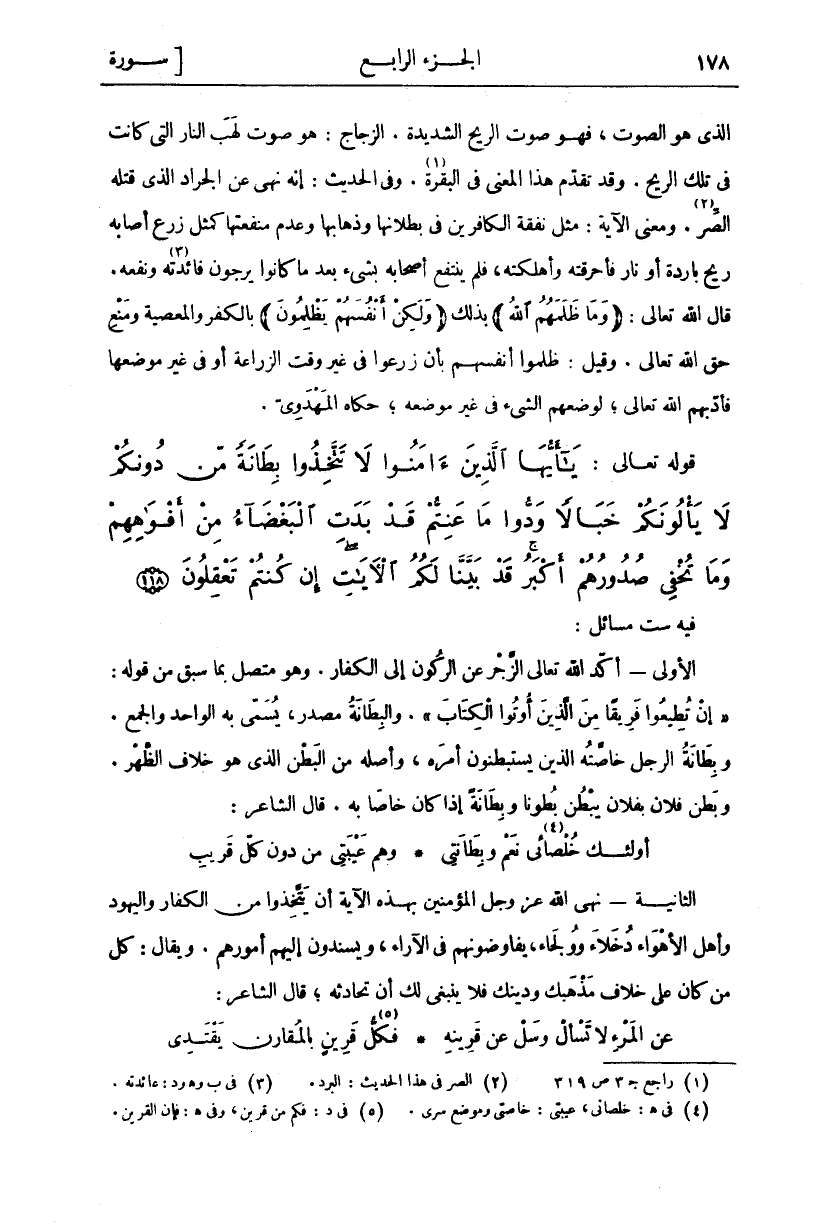 ١٧٨ الجـزء الرابـع [ سـورة
الذى هو الصوت ، فهـو صوت الريح الشديدة . الزجاج : هو صوت لَهَب النار التى كانت
فى تلك الريح . وقد تقدّم هذا المعنى فى البقرة (١) . وفى الحديث : إنه نهى عن الجراد الذى قتله
الصِّر (٢) . ومعنى الآية : مثل نفقة الكافرين فى بطلانها وذهابها وعدم منفعتها كمثل زرع أصابه
ريح باردة أو نار فأحرقته وأهلكته، فلم ينتفع أصحابه بشىء بعد ما كانوا يرجون فائدته (٣) ونفعه .
قال الله تعالى : ﴿ وَمَا ظَلَمَهُمُ ٱللهُ ﴾ بذلك ﴿ وَلَكِنْ أَنْفُسَهُمْ يَظْلِمُونَ ﴾ بالكفر والمعصية ومَنْعِ
حق الله تعالى . وقيل : ظلموا أنفسهـم بأن زرعوا فى غير وقت الزراعة أو فى غير موضعها
فأدّبهم الله تعالى ؛ لوضعهم الشىء فى غير موضعه ؛ حكاه المَهْدَوِىّ .
قوله تعـالى : يَـٰٓأَيُّهَـا ٱلَّذِينَ ءَامَنُـوا لَا تَتَّخِذُوا بِطَانَةً مِّن دُونِكُمْ
لَا يَأْلُونَكُمْ خَبَـالًا وَدُّوا مَا عَنِتُّمْ قَـدْ بَدَتِ ٱلْبَغْضَآءُ مِنْ أَفْوَٰهِهِمْ
وَمَا تُخْفِى صُدُورُهُمْ أَكْبَرُ ۚ قَدْ بَيَّنَّا لَكُمُ ٱلْآيَـٰتِ ۖ إِن كُنتُمْ تَعْقِلُونَ ﴿١١٨﴾
فيه ست مسائل :
الأولى — أكّد الله تعالى الزَّجْر عن الرُكون إلى الكفار . وهو متصل بما سبق من قوله :
« إنْ تُطِيعُوا فَرِيقًا مِنَ الَّذِينَ أُوتُوا الْكِتَابَ » . والبِطَانَةُ مصدر، يُسَمّى به الواحد والجمع .
وبِطَانَةُ الرجل خاصّتُه الذين يستبطنون أمرَه ، وأصله من البَطْن الذى هو خلاف الظَّهْر .
وبَطن فلان بفلان يبْطُن بُطونا وبِطَانَةً إذا كان خاصًا به . قال الشاعر :
أولئـك خُلْصائى (٤) نَعَمْ وبِطَانَتِى * وهم عَيْبَتِى من دون كلّ قَرِيبِ
الثانيـة — نهى الله عز وجل المؤمنين بهـذه الآية أن يَتَّخِذوا من الكفار واليهود
وأهل الأهْوَاء دُخَلَاءَ ووُلَجَاء، يفاوضونهم فى الآراء، ويسندون إليهم أمورهم . ويقال : كل
من كان على خلاف مَذْهَبك ودينك فلا ينبغى لك أن تحادثه ؛ قال الشاعر :
عن المَرْءِ لا تَسْألْ وسَلْ عن قَرينِه * فـكُلُّ (٥) قَرِينٍ بالمُقَارن يَقْتَـدِى
(١) راجع جـ ٣ ص ٣١٩ (٢) الصر فى هذا الحديث : البرد . (٣) فى ب و هـ و د : عائدته .
(٤) فى هـ : خلصانى، عيبتى : خاصتى وموضع سرى . (٥) فى د : فكم من قرين، وفى هـ : فإن القرين .